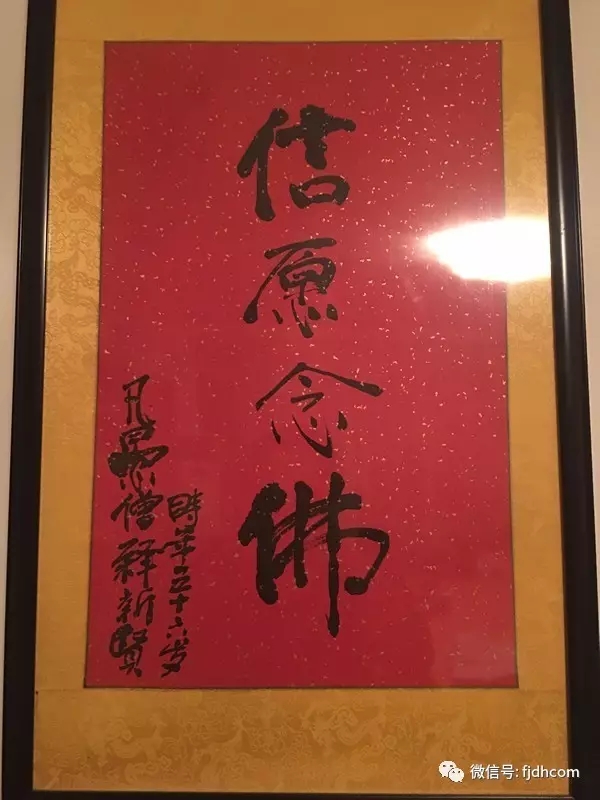 信愿念佛
時年五十六岁
凡愚僧释新賢
微信号: fjdhcom